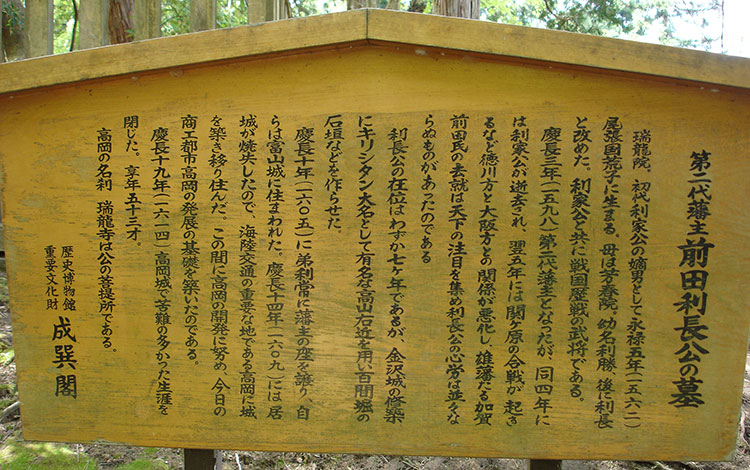 第二代藩主 前田利長公の墓
瑞龍院、初代利家公の嫡男として永禄五年（一五六二）
尾張国荒子に生まる。母は芳春院、幼名利勝、後に利長
と改めた。利家公と共に戦国歴戦の武将である。
慶長三年（一五九八）第二代藩主となったが、同四年に
は利家公が逝去され、翌五年には関ヶ原の合戦が起き
るなど徳川方と大阪方との関係が悪化し、雄藩たる加賀
前田氏の去就は天下の注目を集め利長公の心労は並々な
らぬものがあったのである
利長公の在位はわずか七ヶ年であるが、金沢城の修築
にキリシタン大名として有名な高山右近を用い百間堀の
石垣などを作らせた。
慶長十年（一六〇五）に弟利常に藩主の座を譲り、自
らは富山城に住まわれた。慶長十四年（一六〇九）には居
城が焼失したので、海陸交通の重要な地である高岡に城
を築き移り住んだ。この間に高岡の開発に努め、今日の
商工都市高岡の発展の基礎を築いたのである。
慶長十九年（一六一四）高岡城で苦難の多かった生涯を
閉じた。享年五十三才。
高岡の名刹 瑞龍寺は公の菩提所である。
歴史博物館
重要文化財
成巽閣